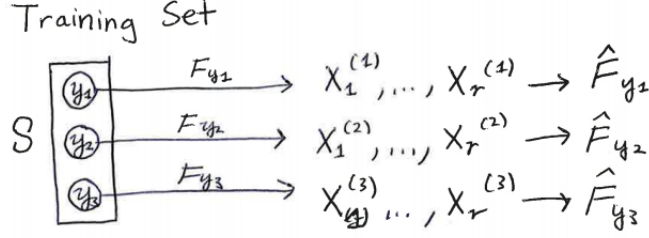 Training Set
S
y₁ F_{y₁} X₁⁽¹⁾, ..., X_r⁽¹⁾ → F̂_{y₁}
y₂ F_{y₂} X₁⁽²⁾, ..., X_r⁽²⁾ → F̂_{y₂}
y₃ F_{y₃} X⁽³⁾ ..., X_r⁽³⁾ → F̂_{y₃}